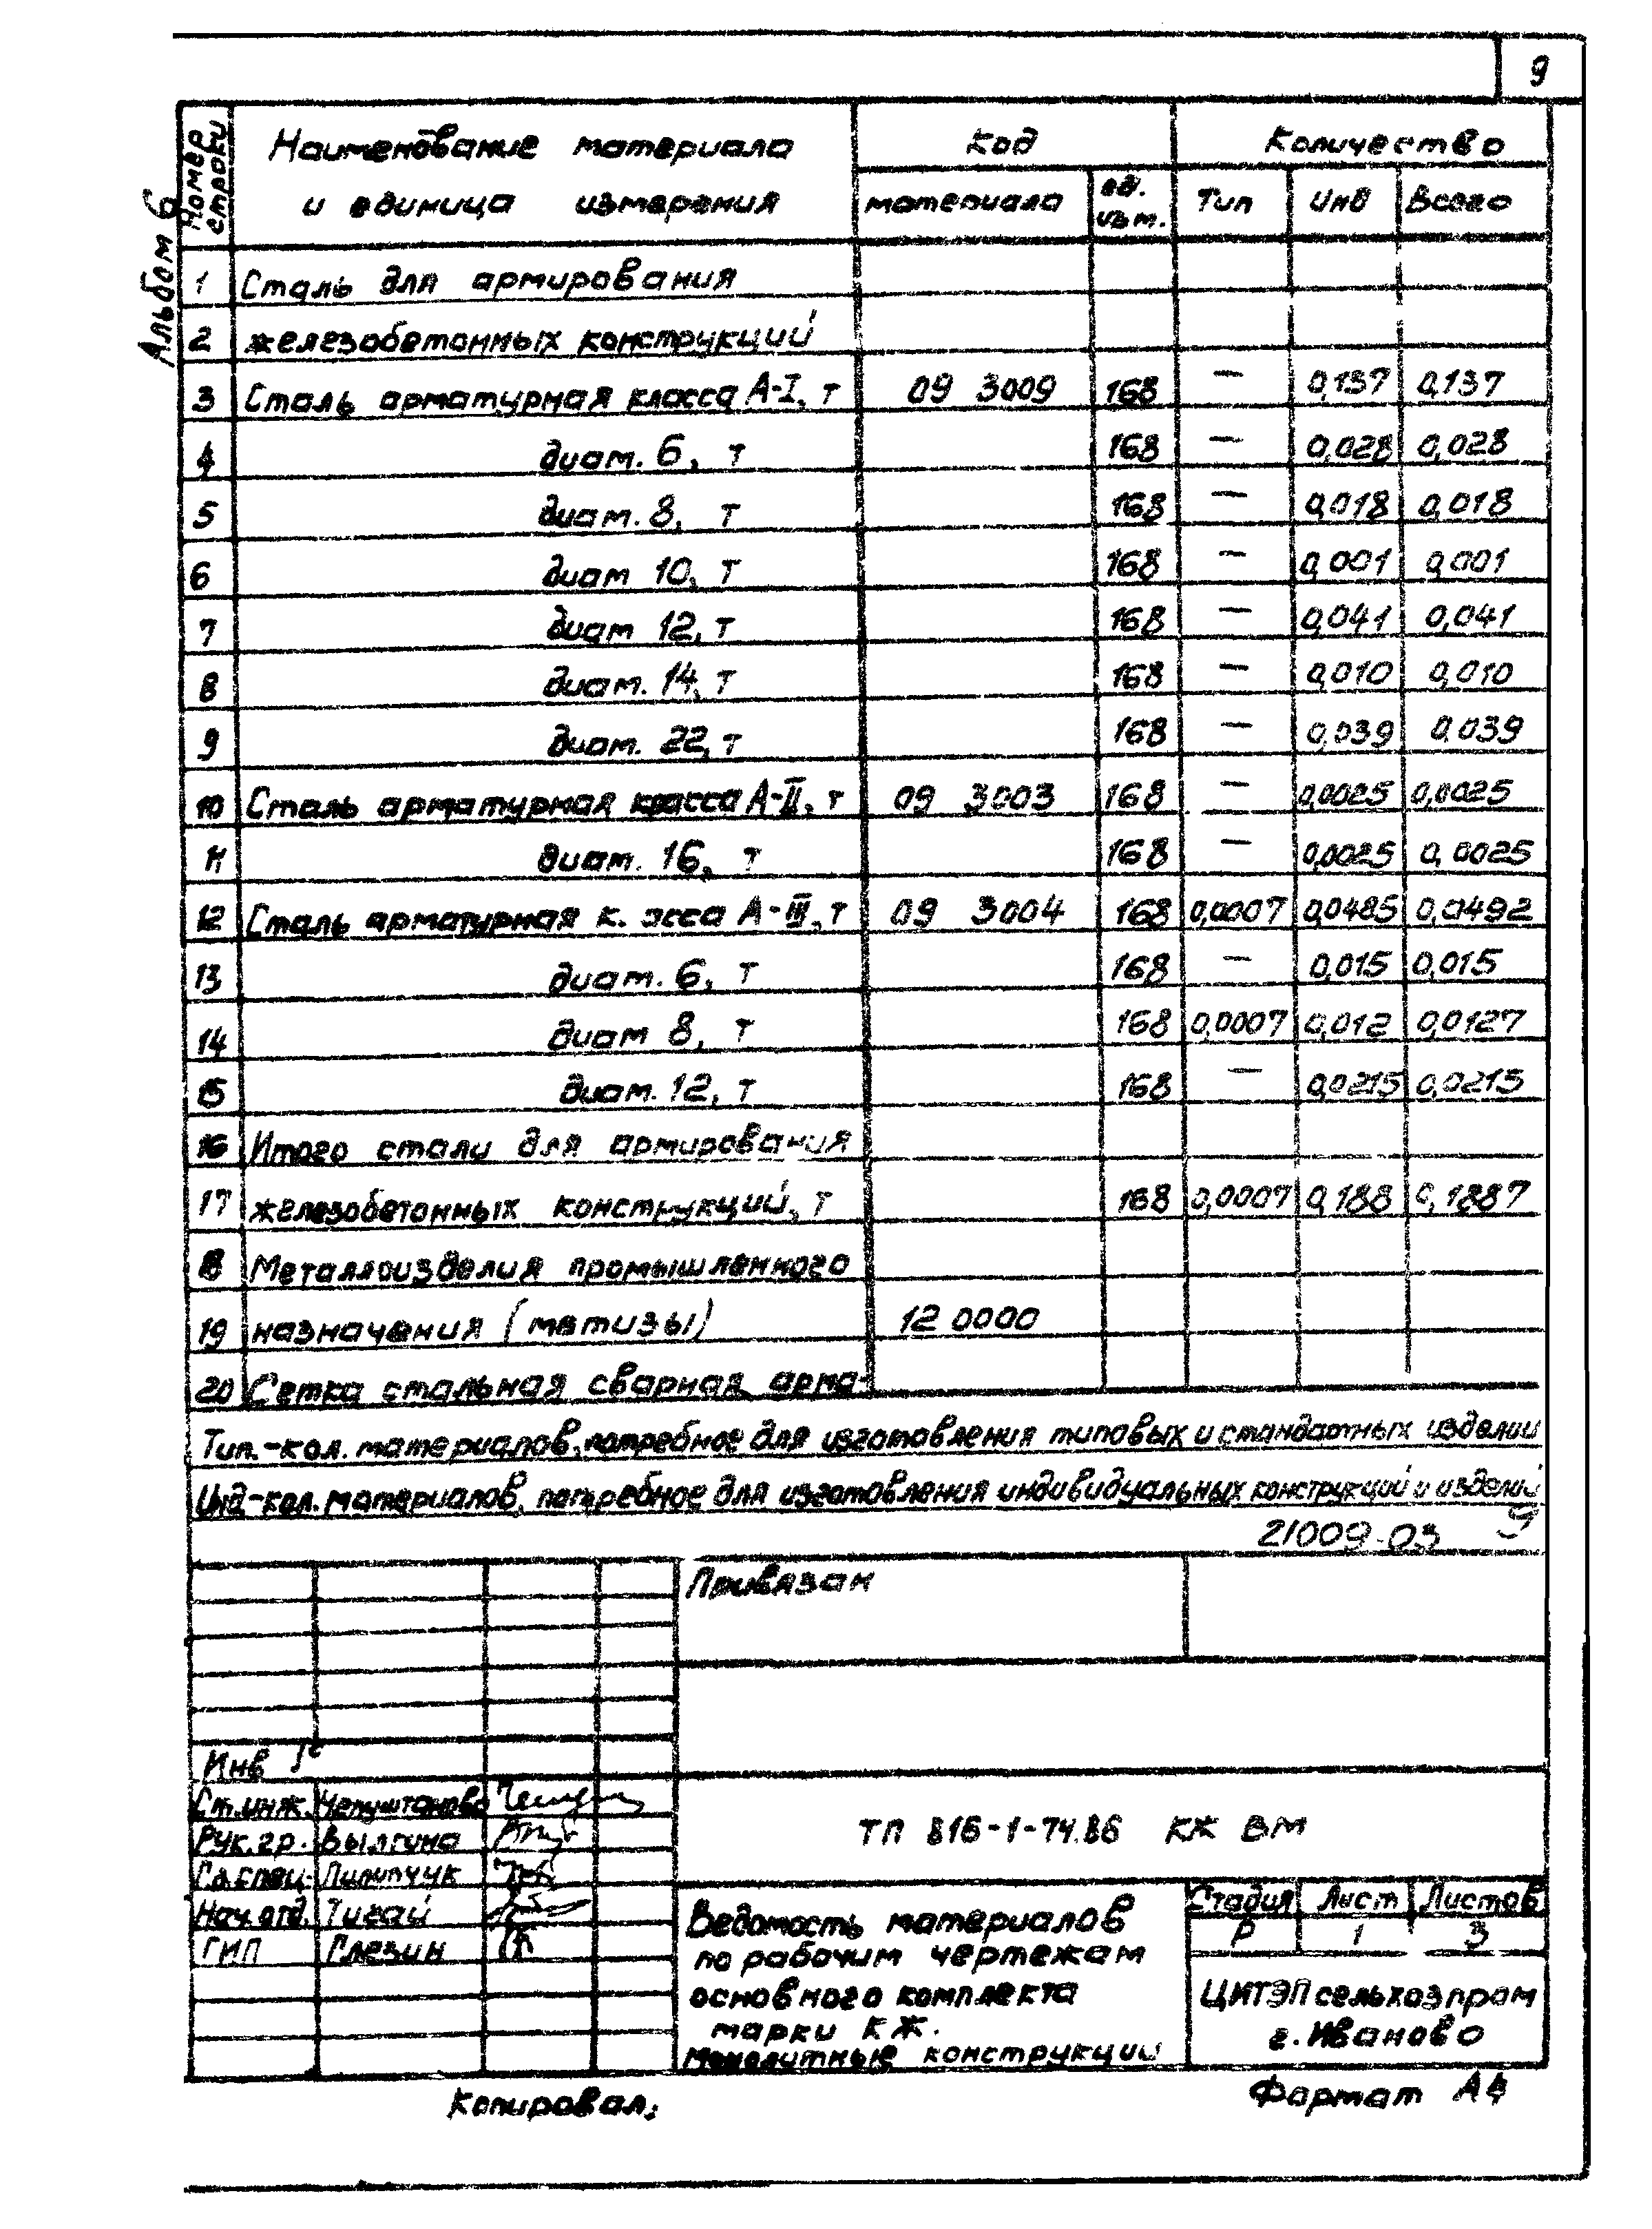 9
Альбом 6
Номер строки
Наименование материала
и единица измерения
Код
материала
ед. изм.
Количество
Тип Инд Всего
1 Сталь для армирования
2 железобетонных конструкций
3 Сталь арматурная класса А-I, т 09 3009 168 — 0,137 0,137
4 диам. 6, т 168 — 0,028 0,028
5 диам. 8, т 168 — 0,018 0,018
6 диам 10, т 168 — 0,001 0,001
7 диам 12, т 168 — 0,041 0,041
8 диам. 14, т 168 — 0,010 0,010
9 диам. 22, т 168 — 0,039 0,039
10 Сталь арматурная класса А-II, т 09 3003 168 — 0,0025 0,0025
11 диам. 16, т 168 — 0,0025 0,0025
12 Сталь арматурная к. асса А-III, т 09 3004 168 0,0007 0,0485 0,0492
13 диам. 6, т 168 — 0,015 0,015
14 диам 8, т 168 0,0007 0,012 0,0127
15 диам. 12, т 168 — 0,0215 0,0215
16 Итого стали для армирования
17 железобетонных конструкций, т 168 0,0007 0,188 0,1887
18 Металлоизделия промышленного
19 назначения (метизы) 12 0000
20 Сетка стальная сварная арма-
Тип.-кол. материалов, потребное для изготовления типовых и стандартных изделий
Инд-кол. материалов, потребное для изготовления индивидуальных конструкций и изделий
21009-03 9
Привязан
Инв №
Ст.инж. Чепуштанова
Рук.гр. Вылгина
Гл.спец. Пилипчук
Нач.отд. Тигай
ГИП Глезин
ТП 816-1-74.86 КЖ ВМ
Ведомость материалов
по рабочим чертежам
основного комплекта
марки КЖ.
Монолитные конструкции
Стадия Лист Листов
Р 1 3
ЦИТЭПсельхозпром
г. Иваново
Копировал:
Формат А4